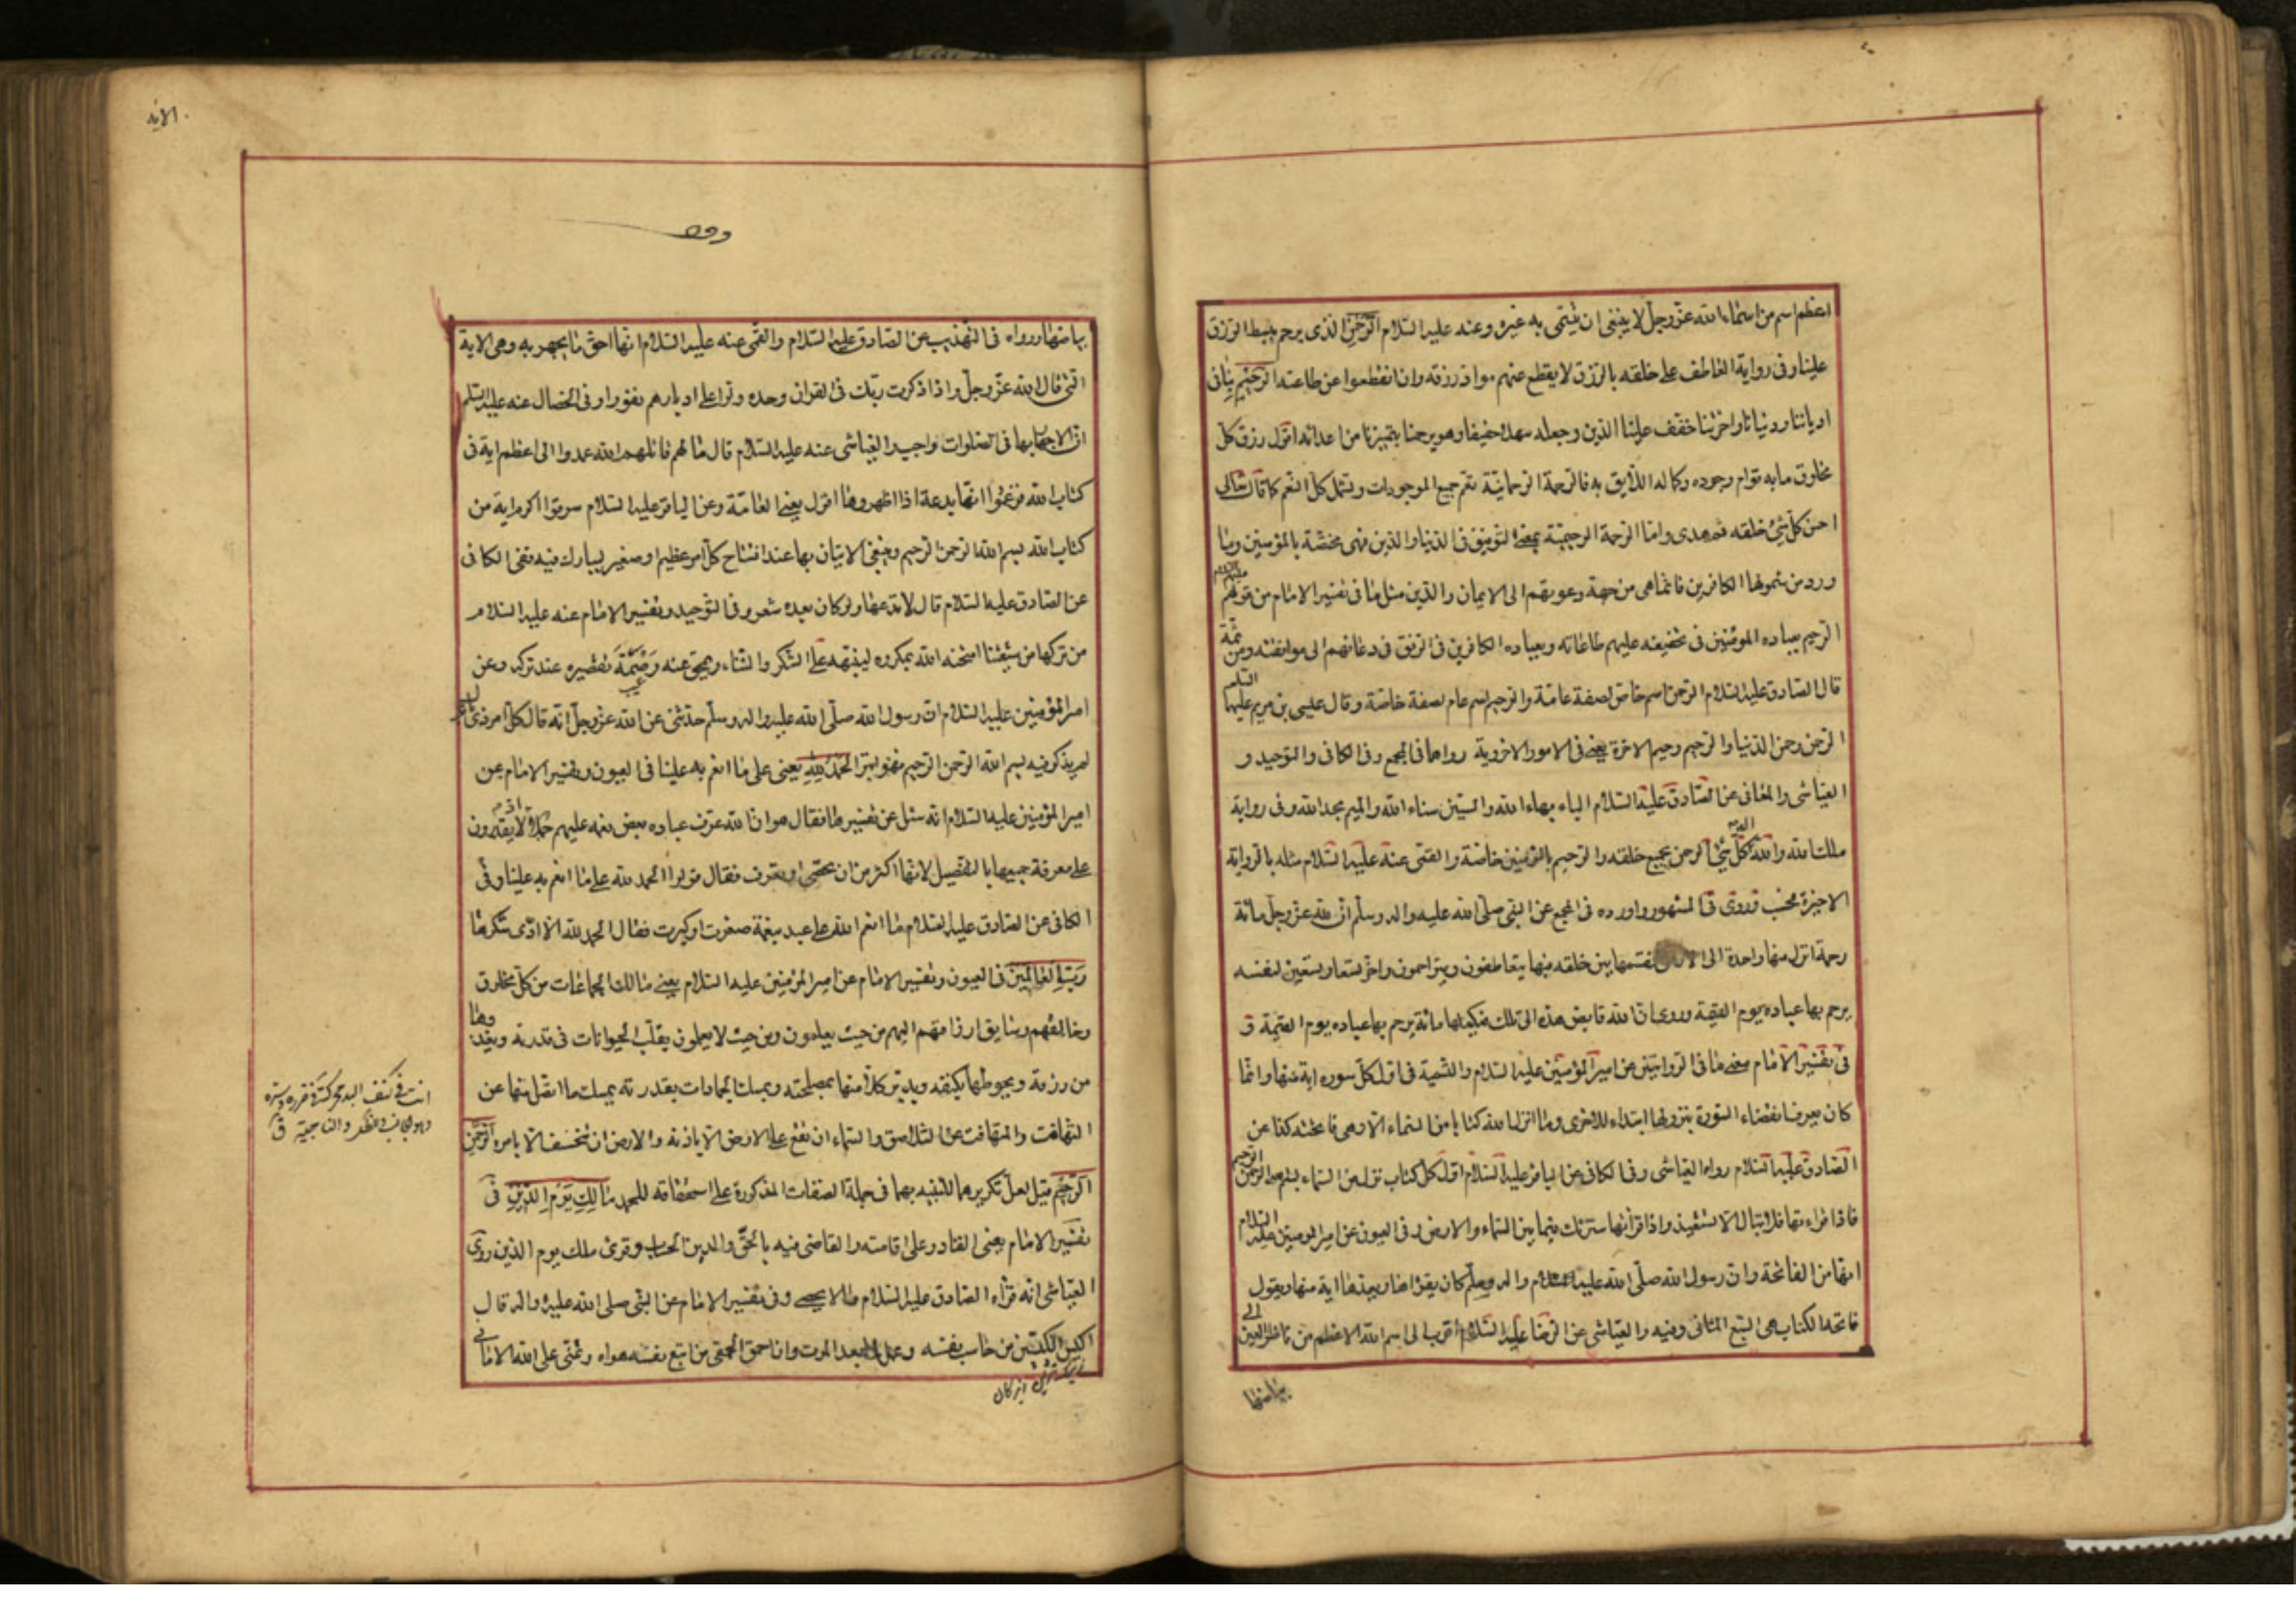 اعظم اسم من اسماء الله عزّ وجلّ لا ينبغى ان يتسمّى به غيره وعنه عليه السّلام الرّحمن الذى يرحم ببسط الرّزق
علينا وفى رواية العاطف على خلقه بالرّزق لا يقطع عنهم موادّ رزقه وان انقطعوا عن طاعته الرّحيم بنا فى
ادياننا ودنيانا واخرتنا خفّف علينا الدّين وجعله سهلا خفيفا وهو يرحمنا بتميزنا من اعدائه اقول رزق كلّ
مخلوق مابه قوام وجوده وكماله اللّايق به فالرّحمة الرّحمانيّة تعم جميع الموجودات وتشمل كلّ النعم كما قال تعالى
احسن كلّ شئ خلقه ثم هدى وامّا الرّحمة الرّحيميّة بمعنى التّوفيق فى الدّنيا والدّين فهى مختصّة بالمؤمنين وما
ورد من شمولها الكافرين فانّما هى من جهة دعوتهم الى الايمان والدّين مثل ما فى تفسير الامام من قولهم عليهم السلام
الرّحيم بعباده المؤمنين فى تخفيفه عليهم طاعاته وبعباده الكافرين فى الرّفق فى دعائهم الى موافقته ومن ثمّة
قال الصّادق عليه السّلام الرّحمن اسم خاصّ لصفة عامّة والرّحيم اسم عام لصفة خاصّة وقال عيسى بن مريم عليهما السلام
الرّحمن رحمن الدّنيا والرّحيم رحيم الاخرة يعنى فى الامور الاخروية رواهما فى المجمع وفى الكافى والتوحيد و
العيّاشى والمعانى عن الصّادق عليه السّلام الباء بهاء الله والسّين سناء الله والميم مجد الله وفى رواية
ملك الله والله اله كلّ شئ الرحمن بجميع خلقه والرّحيم بالمؤمنين خاصّة والقمّى عنه عليه السّلام مثله بالرّواية
الاخيرة فحسب وروى فى المشهور واورده فى المجمع عن النبى صلّى الله عليه واله وسلّم انّ لله عزّ وجلّ مائة
رحمة انزل منها واحدة الى الارض فقسمها بين خلقه فبها يتعاطفون ويتراحمون واخّر تسعا وتسعين لنفسه
يرحم بها عباده يوم القيمة وروى انّ الله قابض هذه الى تلك فيكملها مائة يرحم بها عباده يوم القيمة و
فى تفسير الامام معنى ما فى الرّوايتين عن امير المؤمنين عليه السّلام والتّسمية فى اوّل كلّ سورة اية منها وانّما
كان يعرف انقضاء السّورة بنزولها ابتداء للاخرى وما انزل الله كتابا من السّماء الّا وهى فاتحته كذا عن
الصّادق عليه السّلام رواه العيّاشى وفى الكافى عن الباقر عليه السّلام اوّل كلّ كتاب نزل من السّماء بسم الله الرّحمن الرّحيم
فاذا قراءتها فلا تبال الّا تستعيذ واذا قرأتها سترتك فيما بين السّماء والارض وفى العيون عن امير المؤمنين عليه السّلام
انها من الفاتحة وانّ رسول الله صلّى الله عليه واله وسلّم كان يقرؤها ويعدّها اية منها ويقول
فاتحة الكتاب هى السّبع المثانى وفيه والعيّاشى عن الرّضا عليه السّلام اقرب الى اسم الله الاعظم من ناظر العين الى
بياضها
الاية
بياضها ورواه فى التّهذيب عن الصّادق عليه السّلام والقمّى عنه عليه السّلام انها احق ما يجهر به وهى الاية
الّتى قال الله عزّ وجلّ واذا ذكرت ربّك فى القران وحده ولّوا على ادبارهم نفورا وفى الخصال عنه عليه السّلم
انّ الاجهار بها فى الصلوات واجب والعيّاشى عنه عليه السّلام قال مالهم قاتلهم الله عمدوا الى اعظم اية فى
كتاب الله فزعموا انّها بدعة اذا اظهروها اقول يعنى العامّة وعن الباقر عليه السّلام سرقوا اكرم اية من
كتاب الله بسم الله الرّحمن الرّحيم وينبغى الاتيان بها عند افتتاح كلّ امر عظيم او صغير ليبارك فيه ففى الكافى
عن الصّادق عليه السّلام قال لا تدعها ولو كان بعده شعر وفى التّوحيد وتفسير الامام عنه عليه السّلام
من تركها من شيعتنا امتحنه الله بمكروه لينبّهه على الشّكر والثّناء ويمحق عنه وصمة تقصيره عند تركه وعن
امير المؤمنين عليه السّلام انّ رسول الله صلّى الله عليه واله وسلّم حدّثنى عن الله عزّ وجلّ انّه قال كلّ امر ذى بال
لم يذكر فيه بسم الله الرّحمن الرّحيم فهو ابتر الحمد لله يعنى على ما انعم به علينا فى العيون وتفسير الامام عن
امير المؤمنين عليه السّلام انّه سئل عن تفسيرها فقال هو انّ الله عرّف عباده بعض نعمه عليهم جملا اذ لا يقدرون
على معرفة جميعها بالتّفصيل لانّها اكثر من ان تحصى او تعرف فقال قولوا الحمد لله على ما انعم به علينا وفى
الكافى عن الصّادق عليه السّلام ما انعم الله على عبد بنعمة صغرت او كبرت فقال الحمد لله الّا ادّى شكرها
ربّ العالمين فى العيون وتفسير الامام عن امير المؤمنين عليه السّلام يعنى مالك الجماعات من كلّ مخلوق
وخالقهم وسايق ارزاقهم اليهم من حيث يعلمون ومن حيث لا يعلمون يقلّب الحيوانات فى قدرته ويغذوها
من رزقه ويحوطها بكنفه ويدبّر كلّا منها بمصلحته ويمسك الجمادات بقدرته يمسك ما اتّصل منها عن
التّهافت والمتهافت عن التّلاصق والسّماء ان تقع على الارض الّا باذنه والارض ان تنخسف الّا بامره الرّحمن
الرّحيم قيل لعلّ تكريرهما للتّنبيه بهما فى جملة الصّفات المذكورة على استحقاقه للحمد مالك يوم الدّين فى
تفسير الامام يعنى القادر على اقامته والقاضى فيه بالحقّ والدين الحساب وقرئ ملك يوم الدّين روى
العيّاشى انّه قرأه الصّادق عليه السّلام ما لا يحصى وفى تفسير الامام عن النّبى صلى الله عليه واله قال
اكيس الكيّسين من حاسب نفسه وعمل لما بعد الموت وانّ احمق الحمقى من اتبع نفسه هواه وتمنّى على الله الامانى
زيرك ترين زيركان